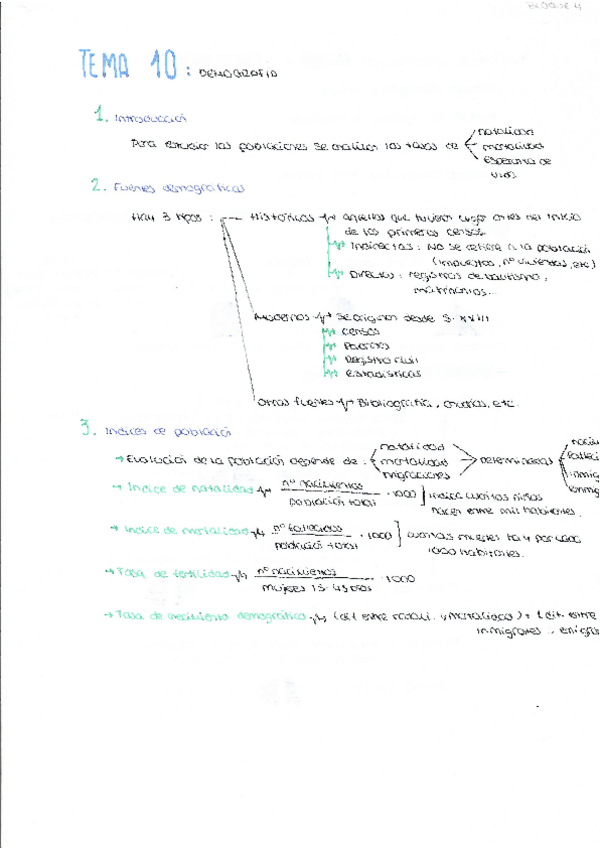 BLOQUE 4
TEMA 10: DEMOGRAFIA
1. Introducción
Para estudiar las poblaciones se analizan las tasas de
natalidad
mortalidad
esperanza de
vida
2. Fuentes demográficas
Hay 3 tipos:
Históricas
aquellas que tuvieron lugar antes del inicio
de los primeros censos.
Indirectas: No se refiere a la población
(impuestos, nº viviendas, etc)
Directas: registros de bautismo,
matrimonios...
Modernas
Se originan desde S. XVIII
Censos
Padrones
Registro civil
Estadísticas
Otras fuentes
Bibliografía, etc.
3. Indices de población
→ Evolución de la población depende de:
natalidad
mortalidad
migraciones
Determinadas
→ Indice de natalidad
nº nacimientos
población total
· 1000
indica cuantos niños
nacen entre mil habitantes.
→ Indice de mortalidad
nº fallecidos
población total
· 1000
cuantas muertes hay por cada
1000 habitantes.
→ Tasa de fertilidad
nº nacimientos
mujeres 15-49 años
· 1000
→ Tasa de crecimiento demográfico
(dif. entre natali. y mortalidad) + (dif. entre
inmigrantes